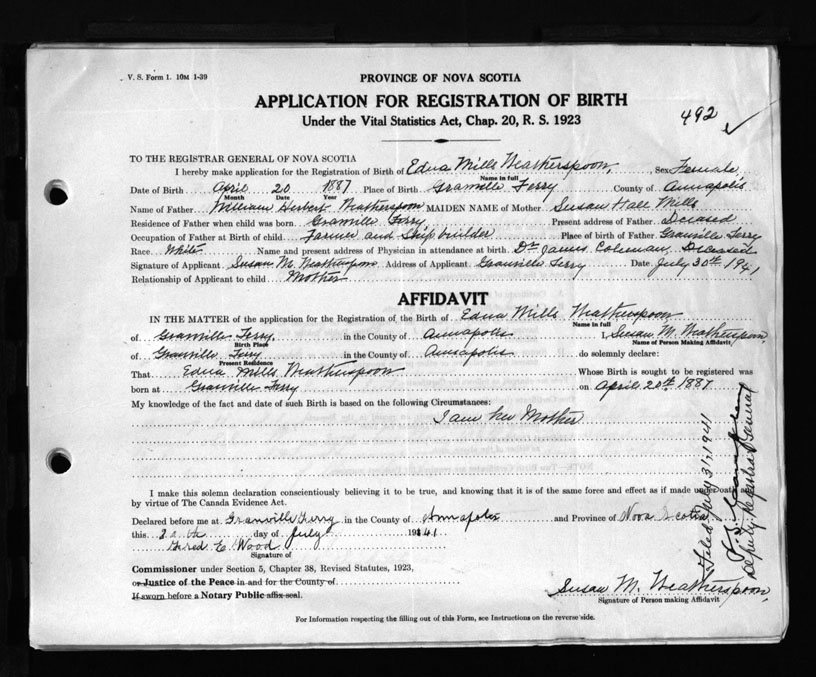 V. S. Form 1. 10M 1-39
PROVINCE OF NOVA SCOTIA
APPLICATION FOR REGISTRATION OF BIRTH
Under the Vital Statistics Act, Chap. 20, R. S. 1923
492
TO THE REGISTRAR GENERAL OF NOVA SCOTIA
I hereby make application for Registration of Birth of Edna Mills Weatherspoon, Sex Female
Name in full
Date of Birth April 20 1887 Place of Birth Granville Ferry County of Annapolis
Month Date Year
Name of Father William Herbert Weatherspoon MAIDEN NAME of Mother Susan Hall Mills
Residence of Father when child was born. Granville Ferry Present address of Father Deceased
Occupation of Father at Birth of child. Farmer and Ship builder Place of birth of Father Granville Ferry
Race. White Name and present address of Physician in attendance at birth. Dr. James Coleman, Deceased
Signature of Applicant. Susan M. Weatherspoon Address of Applicant. Granville Ferry Date. July 30th 1941
Relationship of Applicant to child Mother
AFFIDAVIT
IN THE MATTER of the application for the Registration of the Birth of Edna Mills Weatherspoon
Name in full
of Granville Ferry, in the County of Annapolis I, Susan M. Weatherspoon
Birth Place Name of Person Making Affidavit
of Granville Ferry in the County of Annapolis do solemnly declare:
Present Residence
That Edna Mills Weatherspoon Whose Birth is sought to be registered was
born at Granville Ferry on April 20th 1887
My knowledge of the fact and date of such Birth is based on the following Circumstances:
I am her Mother
I make this solemn declaration conscientiously believing it to be true, and knowing that it is of the same force and effect as if made under oath
by virtue of The Canada Evidence Act.
Declared before me at Granville Ferry in the County of Annapolis and Province of Nova Scotia
this day of July 1941
Fred E. Wood
Signature of
Commissioner under Section 5, Chapter 38, Revised Statutes, 1923,
or Justice of the Peace in and for the County of
If sworn before a Notary Public affix seal.
Susan M. Weatherspoon,
Signature of Person making Affidavit
Filed July 31, 1941
Deputy Registrar General
For Information respecting the filling out of this Form, see Instructions on the reverse side.